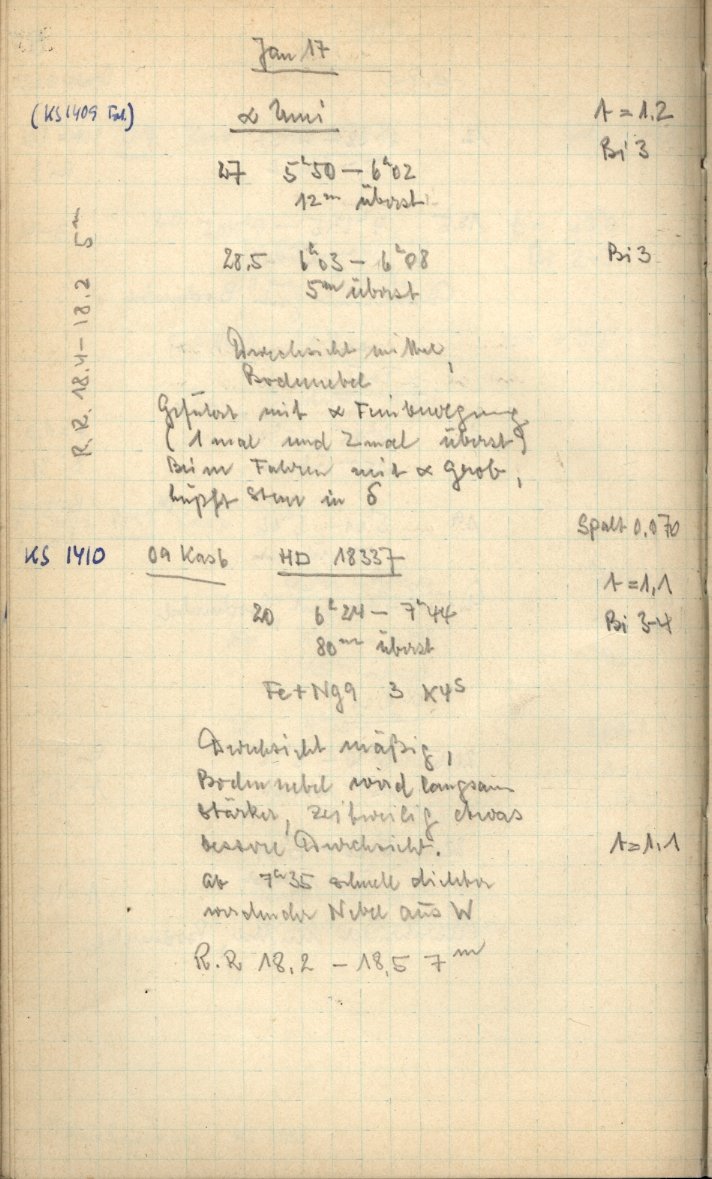 Jan 17
(KS 1409 Fal.) α Umi t = 1,2
Bi 3
27 5h50 – 6h02
12m überst
28,5 6h03 – 6h08 Bi 3
5m überst
R.R. 18.4 – 18.2 5m
Durchsicht mittel,
Bodennebel
Geführt mit α Feinbewegung
(1 mal und 2 mal überst)
Beim Fahren mit α Grob,
hüpft Stern in δ
Spalt 0,070
KS 1410 09 Kasb HD 18337
t = 1,1
20 6h24 – 7h44 Bi 3-4
80m überst
Fe+Ng9 3 x 4s
Durchsicht mäßig,
Bodennebel wird langsam
stärker, zeitweilig etwas
bessere Durchsicht. t = 1,1
ab 7h35 schnell dichter
werdender Nebel aus W
R.R 18,2 – 18,5 7m